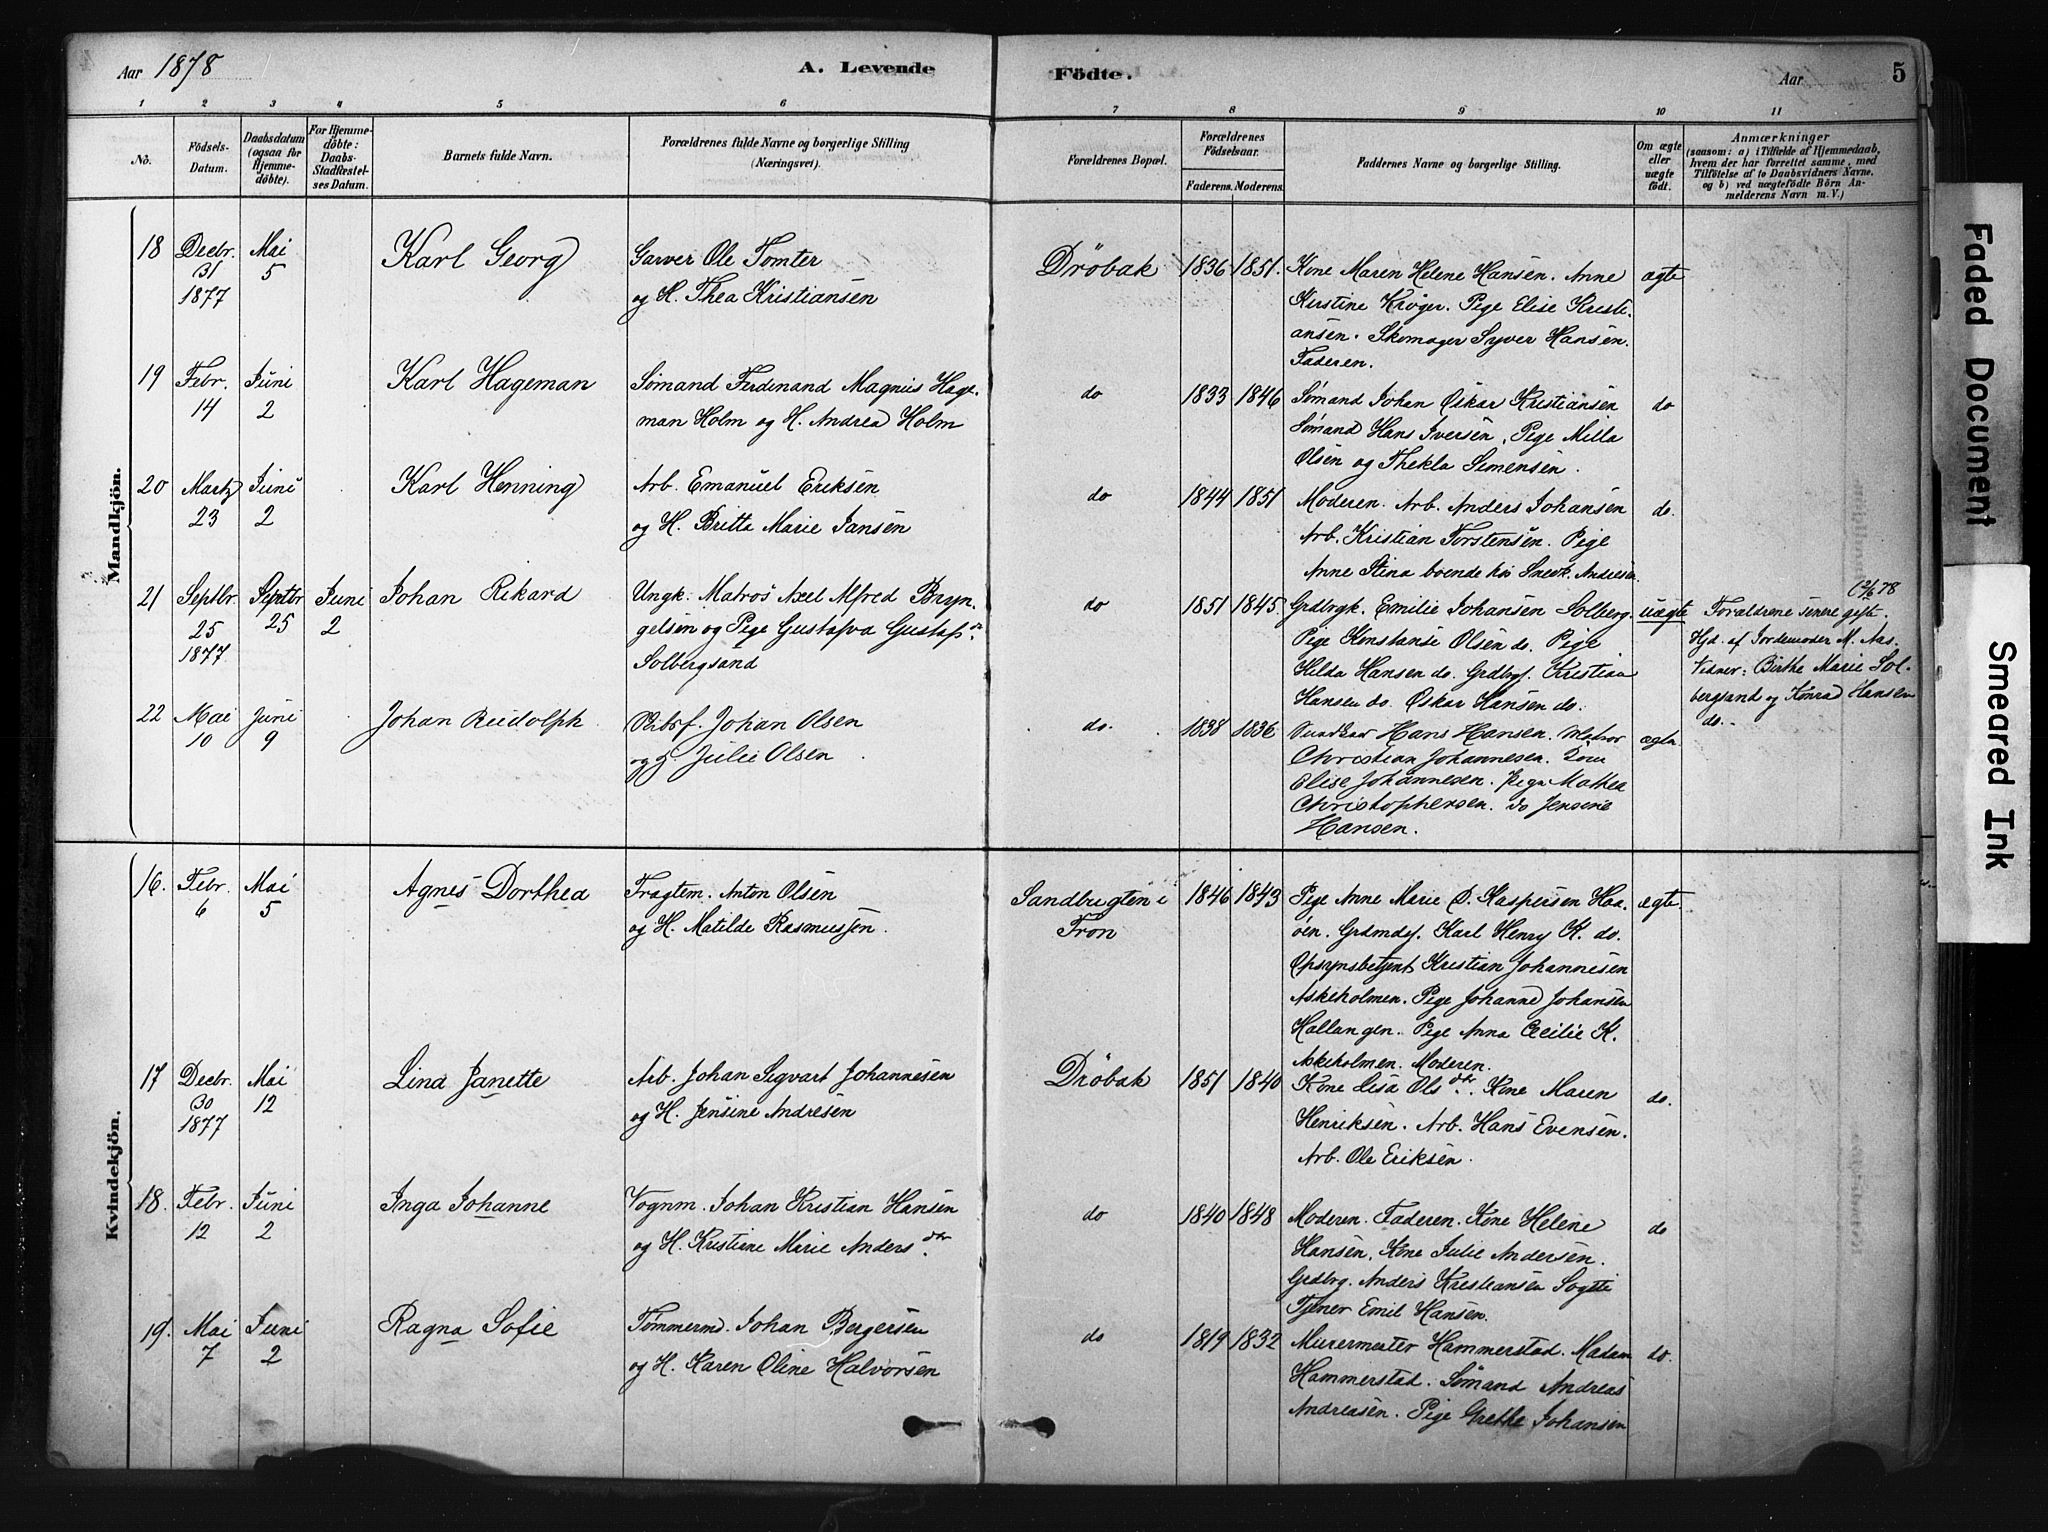 Aar 1878
A. Levende
Födte.
Aar
5
1 2 3 4 5 6 7 8 9 10 11
No.
Födsels-
Datum.
Daabsdatum
(ogsaa for
Hjemme-
döbte).
For Hjemme-
döbte:
Daabs-
Stadfæstel-
ses Datum.
Barnets fulde Navn.
Forældrenes fulde Navne og borgerlige Stilling
(Næringsvei).
Forældrenes Bopæl.
Forældrenes
Födselsaar.
Faderens. Moderens.
Faddernes Navne og borgerlige Stilling.
Om ægte
eller
uægte
födt.
Anmærkninger
(saasom: a) i Tilfælde af Hjemmedaab,
hvem der har forrettet samme, med
Tilföielse af to Daabsvidners Navne,
og b) ved uægtefödte Börn An-
melderens Navn m. V.)
Mandkjön.
18
Decbr.
31
1877
Mai
5
Karl Georg
Garver Ole Tomter
og H. Thea Kristiansen
Dröbak
1836 1851.
Kone Maren Helene Hansen. Anne
Kerstine Kröger. Pige Elise Kristi-
ansen. Skomager Syver Hansen.
Faderen.
ægte
19
Febr.
14
Juni
2
Karl Hageman
Sømand Ferdinand Magnus Hage-
man Holm og H. Andrea Holm
do
1833 1846
Sømand Johan Oskar Kristiansen
Sømand Hans Iversen, Pige Milla
Olsen og Thekla Simensen.
do
20
Martz
23
Juni
2
Karl Henning
Arb. Emanuel Eriksen
og H. Britta Marie Jansen
do
1844 1851
Moderen. Arb. Anders Johansen
Arb. Kristian Torstensen. Pige
Anne Stina boende hos Snedk. Andersen
do.
21
Septbr.
25
1877.
Septbr
25
Juni
2
Johan Rikard
Ungk. Matros Axel Alfred Bryn-
gelsen og Pige Gustafva Gustafs dr
Solbergsand
do
1851 1845
Grdbrgk. Emilie Johansen Solberg.
Pige Konstanse Olsen do. Pige
Hilda Hansen do. Grdbrgs. Kristian
Hansen do. Oskar Hansen do.
uægte
12/6 78
Forældrene senere gifte.
Hjd. af Jordemoder M. Aas.
Vidner: Birthe Marie Sol-
bergsand og Konrad Hansen
do.
22
Mai
10
Juni
9
Johan Rudolph
Arbf. Johan Olsen
og H. Julie Olsen
do.
1838 1836
Hans Hansen. Matros
Christian Johannesen. Kone
Elise Johannesen. Pige Mathea
Christophersen. do Jensine
Hansen.
ægte
Kvindekjön.
16.
Febr.
6
Mai
5
Agnes Dorthea
Fragtem. Anton Olsen
og H. Matilde Rasmussen.
Sandbugten i
Fron
1846 1843
Pige Anne Marie D. Kaspersen Haa-
öen. Grdmds. Karl Henry K. do.
Opsynsbetjent Kristian Johannesen
Askeholmen. Pige Johanne Johansen
Hallangen. Pige Anna Cecilie K.
Askeholmen. Moderen.
ægte
17
Decbr.
30
1877
Mai
12
Lina Janette
Arb. Johan Segvart Johannesen
og H. Jensine Andresen
Dröbak
1851 1840
Kone Lisa Ols dtr. Kone Maren
Henriksen. Arb. Hans Evensen.
Arb. Ole Eriksen.
do.
18.
Febr.
12
Juni
2
Inga Johanne
Vognm. Johan Kristian Hansen
og H. Kristine Marie Anders dtr.
do
1840 1848
Moderen. Faderen. Kone Helene
Hansen, Kone Julie Andersen.
Grdbrg. Anders Kristiansen Sogsti
Tjener Emil Hansen.
do
19.
Mai
7
Juni
2
Ragna Sofie
Tømmermd. Johan Bergersen
og H. Karen Oline Halvorsen
do
1819 1832
Murermester Hammerstad. Madam
Hammerstad. Sømand Andreas
Andreasen. Pige Grethe Johansen
do.
Faded Document
Smeared Ink